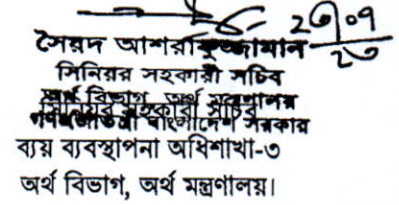 ২৩/০৭/২৩
সৈয়দ আশরাফুজ্জামান
সিনিয়র সহকারী সচিব
অর্থ বিভাগ, অর্থ মন্ত্রণালয়
সিনিয়র সহকারী সচিব
গণপ্রজাতন্ত্রী বাংলাদেশ সরকার
ব্যয় ব্যবস্থাপনা অধিশাখা-৩
অর্থ বিভাগ, অর্থ মন্ত্রণালয়।